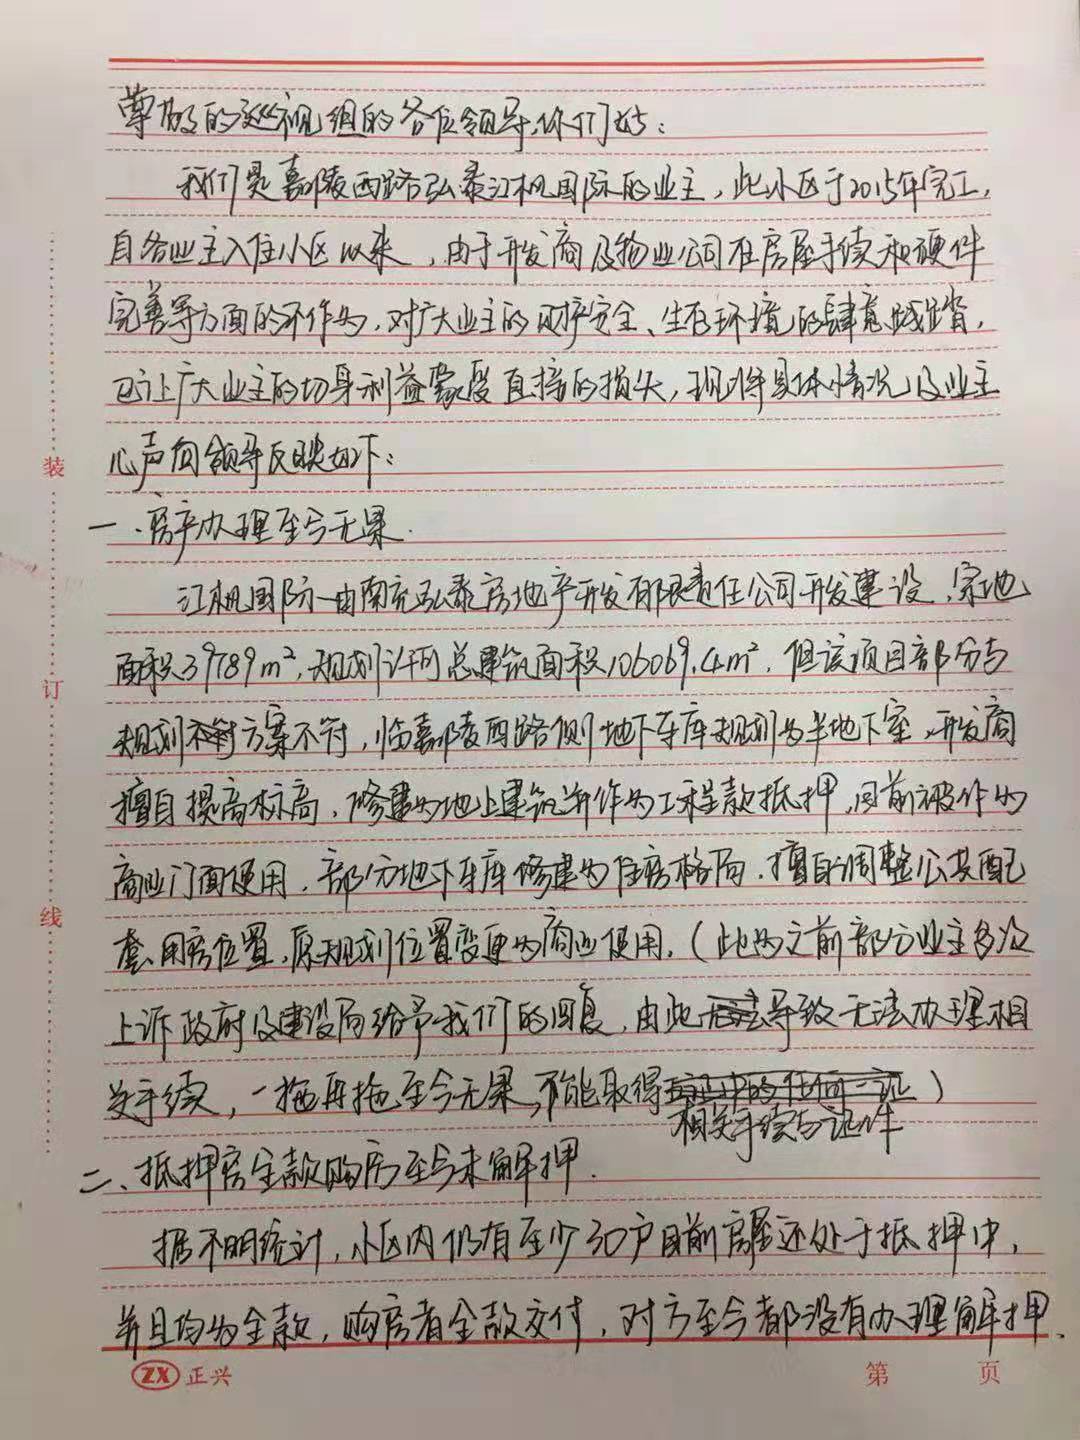 尊敬的巡视组的各位领导,你们好:
我们是嘉陵西路弘泰江枫国际的业主,此小区于2015年完工,
自各业主入住小区以来,由于开发商及物业公司在房屋手续和硬件
完善等方面的不作为,对广大业主的财产安全、生存环境的肆意践踏,
已让广大业主的切身利益蒙受直接的损失,现将具体情况及业主
心声向领导反映如下:
一、房产办理至今无果.
江枫国际一由南充弘泰房地产开发有限责任公司开发建设,宗地
面积39789m²,规划许可总建筑面积106069.4m².但该项目部分与
规划方案不符,临嘉陵西路侧地下车库规划为半地下室,开发商
擅自提高标高,修建为地上建筑并作为工程款抵押,目前被作为
商业门面使用.部分地下车库修建为住房格局.擅自调整公共配
套用房位置,原规划位置变更为商业使用.(此为之前部分业主多次
上诉政府及建设局给予我们的回复,由此导致无法办理相
关手续,一拖再拖至今无果,不能取得)
相关手续与证件
二、抵押房全款购房至今未解押.
据不明统计,小区内仍有至少30户目前房屋还处于抵押中,
并且均为全款,购房者全款交付,对方至今都没有办理解押.
装
订
线
ZX 正兴
第 页